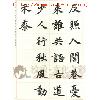 反照入閭巷憂
來誰共語古道
少人行秋風動
禾黍